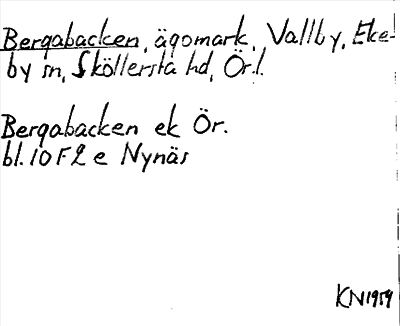 Bergabacken, ägomark, Vallby, Eke-
by sn, Sköllersta hd, Ör.l.
Bergabacken ek Ör.
bl. 10 F 2 e Nynäs
KN 1959